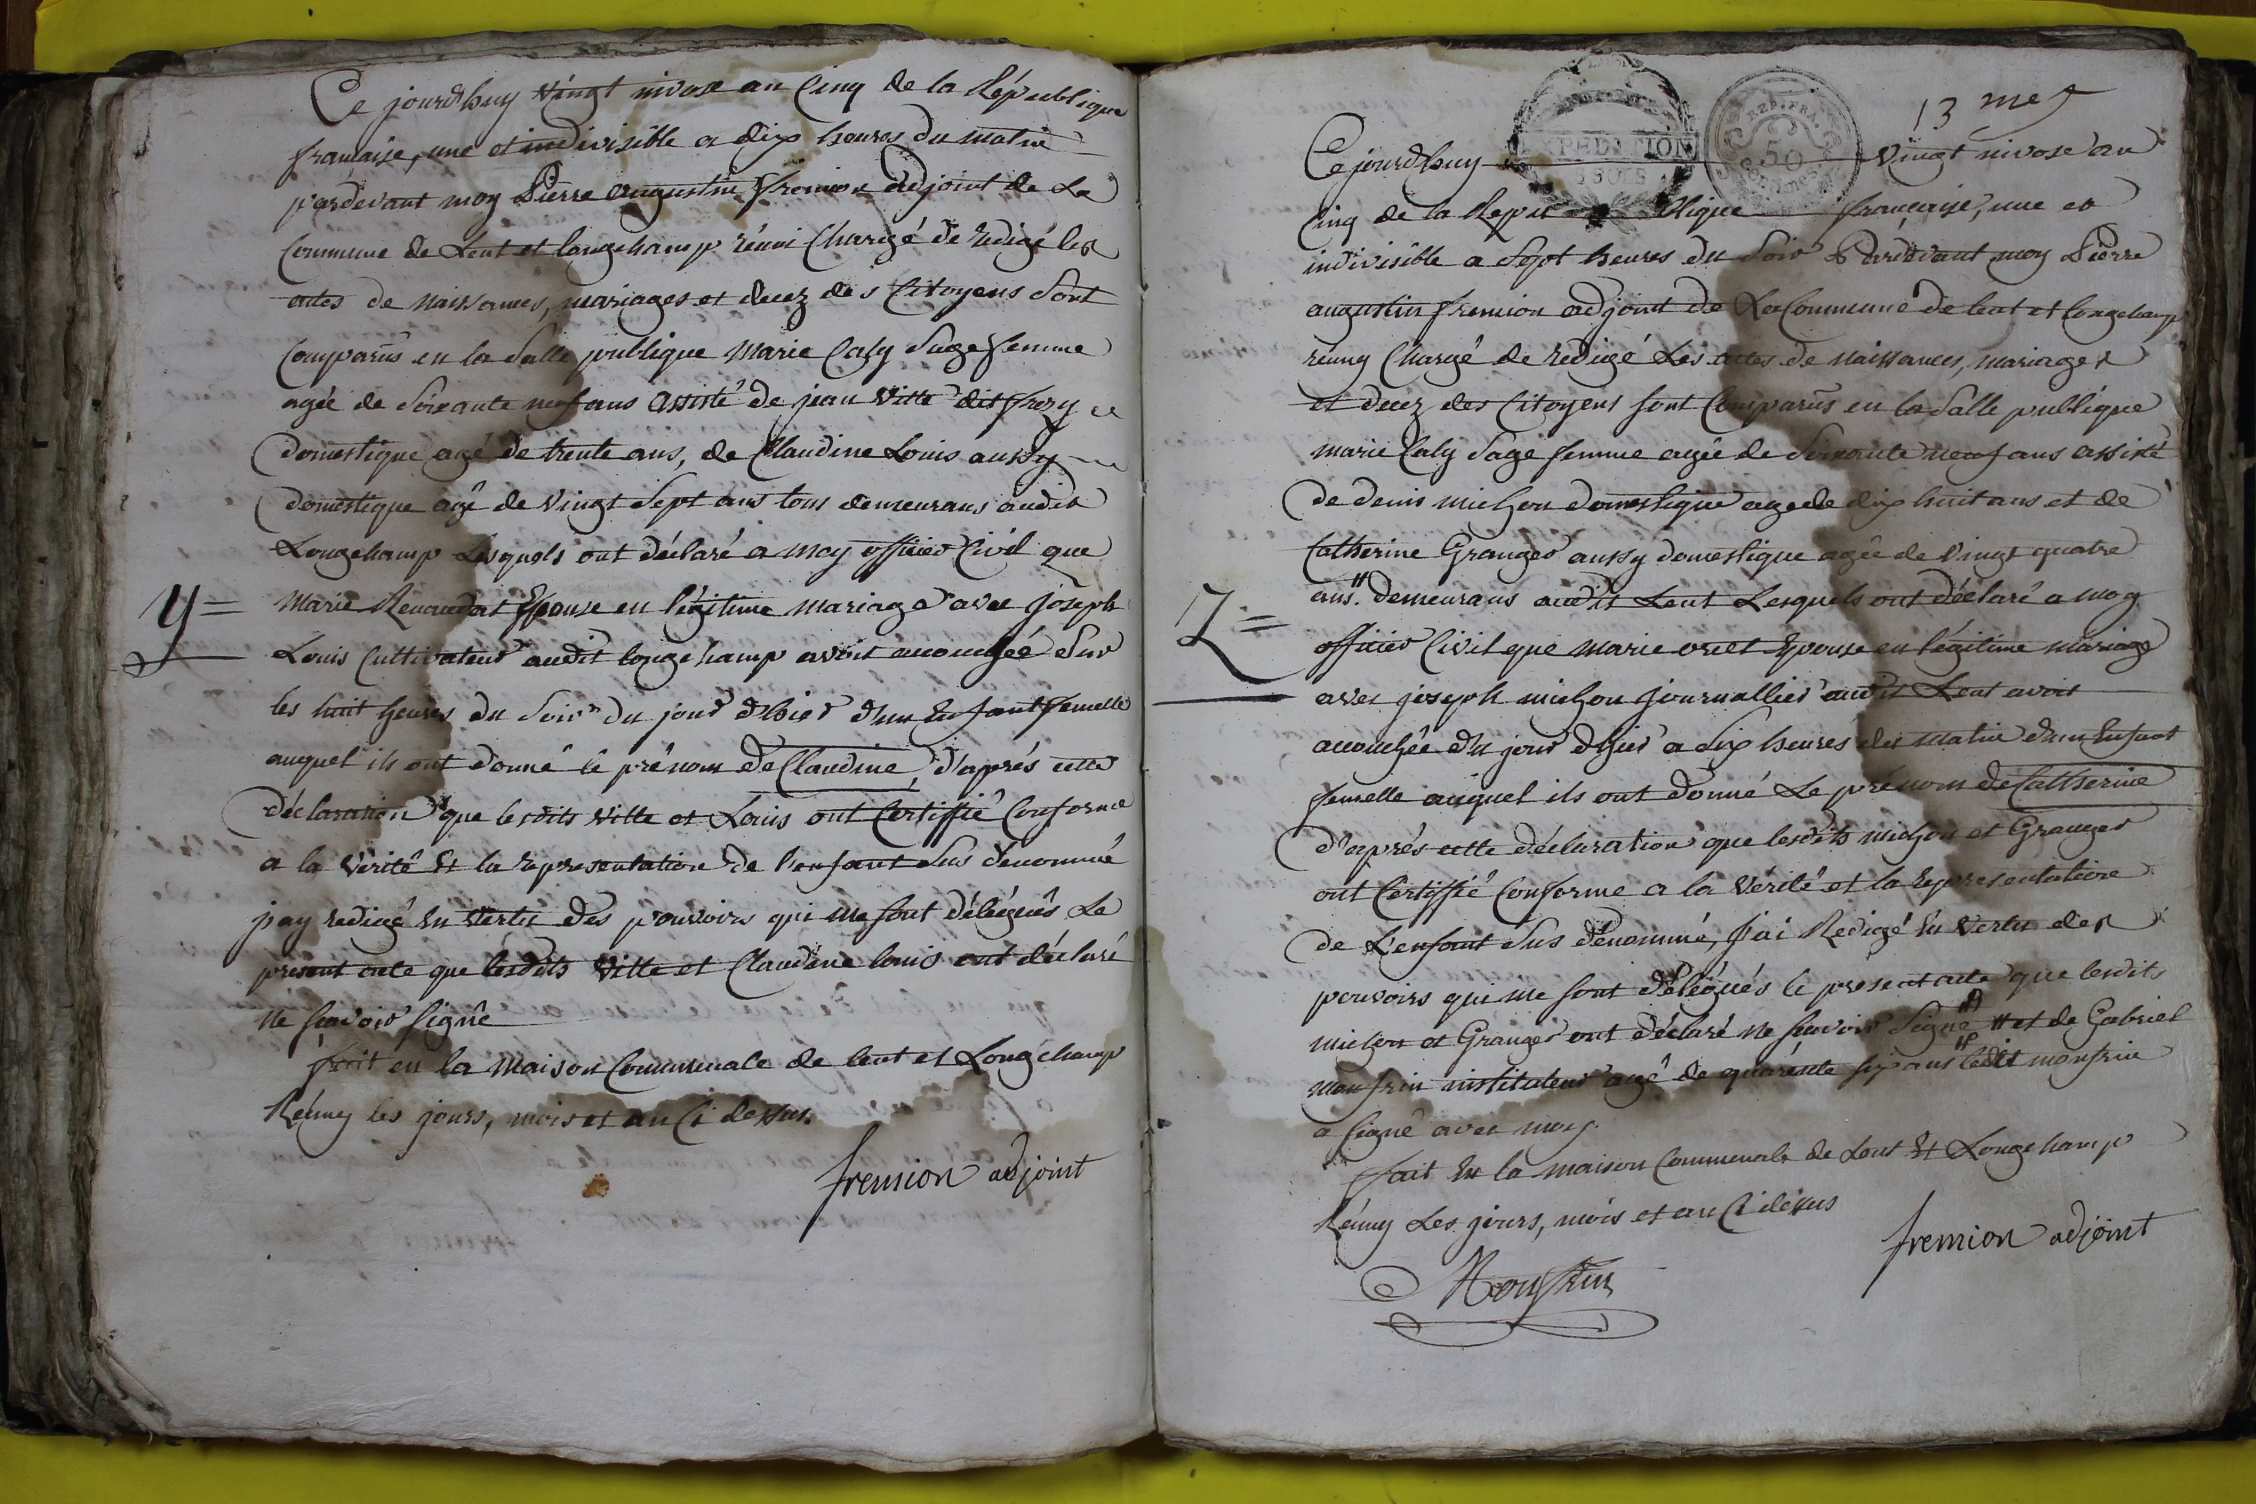 Ce jourd'huy vingt nivose an Cinq de la République
française, une et indivisible a dix heures du matin
pardevant moy Pierre augustin fremion adjoint de La
Commune de Lent et longchamp réuni Chargé de redigé les
actes de naissances, mariages et decez des Citoyens Sont
Comparûs en la Salle publique Marie Caly Sage femme
agée de Soixante neuf ans assisté de jean Vitte dit frozy
domestique agé de trente ans, de Claudine Louis aussy
domestique agé de Vingt Sept ans tous demeurans audit
Longchamp Lesquels ont déclaré a moy officier Civil que
Y=
Marie Renaudat Epouse en légitime mariage avec joseph
Louis Cultivateur audit longchamp avoit accouchée Sur
les huit heures du Soir du jour d'hier d'un Enfant femelle
auquel ils ont donné le prénom de Claudine, d'aprés cette
déclaration que lesdits Vitte et Louis ont Certiffié Conforme
a la Verité Et la representation de l'enfant Sus dénommé
j'ay redigé En Vertu des pouvoirs qui me sont délégués Le
present acte que lesdits Vitte et Claudine louis ont déclaré
Ne Scavoir signé
fait en la Maison Communale de lent et Longchamp
Réuny les jours, mois et an Ci dessus.
fremion adjoint
13 me f
EXPEDITION
REP. FRA.
50
Ce jourd'huy vingt nivose an
Cinq de la Republique française, une et
indivisible a Sept heures du Soir Pardevant moy Pierre
augustin fremion adjoint de La Commune de lent et longchamp
reuny Chargé de redigé Les actes de naissances, mariages
et decez des Citoyens sont Comparûs en la Salle publique
marie Caly Sage femme agée de Soixante neuf ans assisté
de denis michon domestique agé de dix huit ans et de
Catherine Granger aussy domestique agée de Vingt quatre
ans # demeurans audit Lent Lesquels ont déclaré a moy
Z=
officier Civil que Marie oriet Epouse en légitime mariage
avec joseph michon journallier audit Lent avoit
accouchée du jour d'hier a Six heures du matin d'un Enfant
femelle auquel ils ont donné Le prénom de Catherine
d'aprés cette déclaration que lesdits michon et Granger
ont Certiffié Conforme a la Vérité et la representation
de L'enfant Sus dénommé, j'ai Redigé En Vertu des
pouvoirs qui me sont délégués le present acte que lesdits
michon et Granger ont déclaré ne Scavoir Signé # et de Gabriel
monfrin instituteur agé de quarente six ans # ledit monfrin
a signé avec moy
fait En la maison Communale de Lent Et Longchamp
Réuny Les jours, mois et an Ci dessus
fremion adjoint
Monfrin